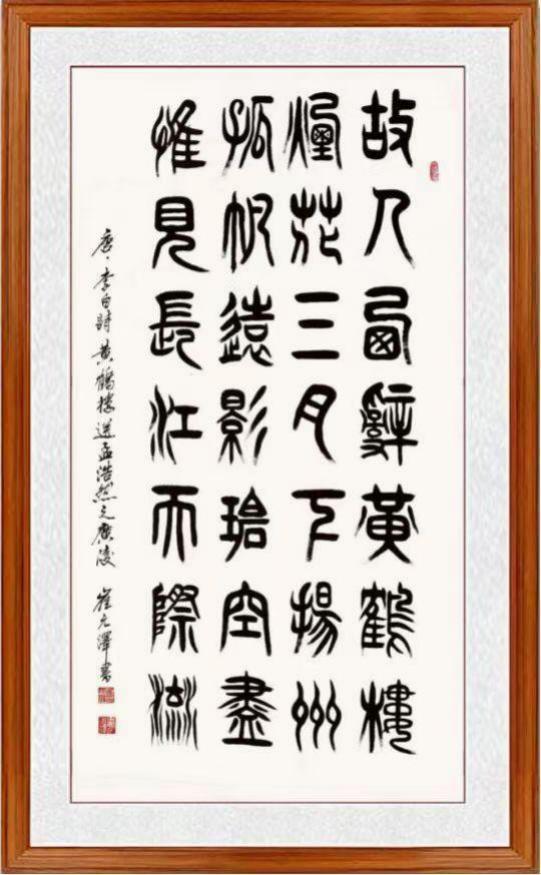 故人西辭黃鶴樓
煙花三月下揚州
孤帆遠影碧空盡
惟見長江天際流
唐·李白詩黃鶴樓送孟浩然之廣陵 崔元澤書